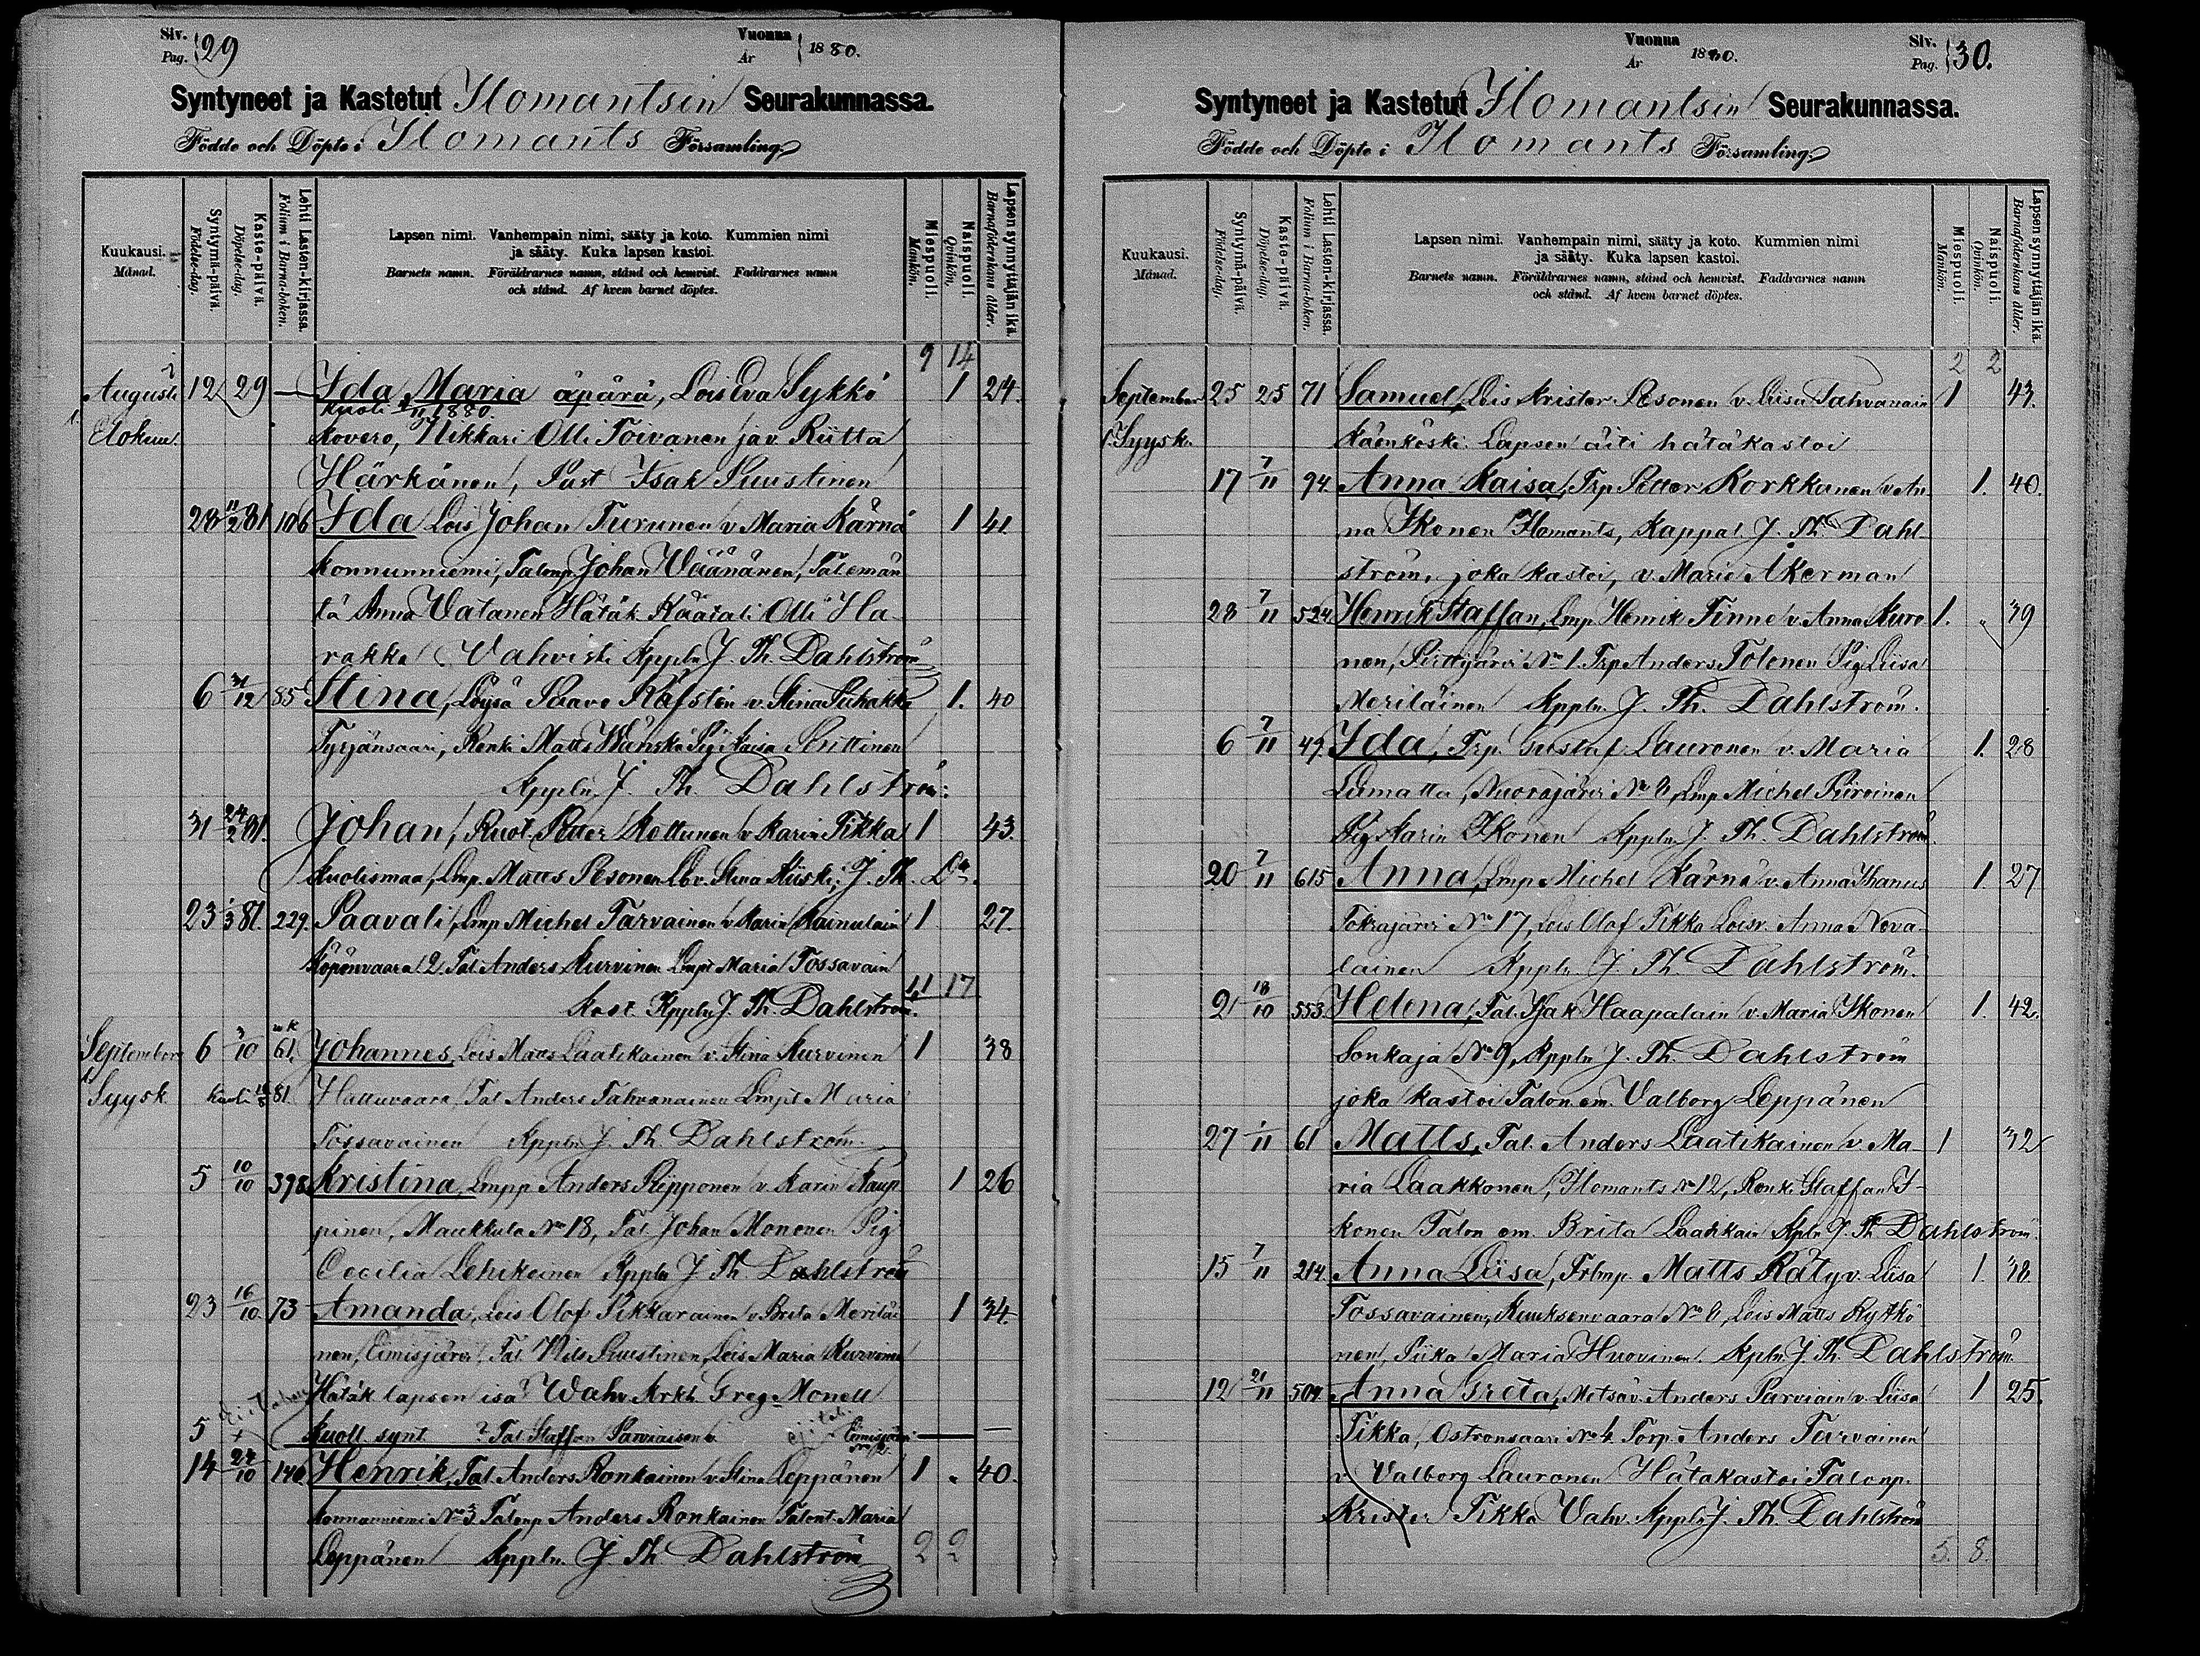 Siv.
Pag. 29
Vuonna
År 1880.
Syntyneet ja Kastetut Ilomantsin Seurakunnassa.
Födde och Döpte i Ilomants Församling
Kuukausi.
Månad.
Syntymä-päivä.
Födelse-dag.
Kaste-päivä.
Döpelse-dag.
Lehti Lasten-kirjassa.
Folium i Barna-boken.
Lapsen nimi. Vanhempain nimi, sääty ja koto. Kummien nimi
ja sääty. Kuka lapsen kastoi.
Barnets namn. Föräldrarnes namn, stånd och hemvist. Faddrarnes namn
och stånd. Af hvem barnet döptes.
Miespuoli.
Mankön.
Naispuoli.
Qvinkön.
Lapsen synnyttäjän ikä.
Barnaföderskans ålder.
9 14
Augusti 12 29 — Ida Maria äpärä, Lois Eva Sykkö 1 24.
kuoli 1880.
Elokuu Kovero, Nikkari Olli Toivanen ja v. Riitta
Härkönen, Past Isak Puustinen
28 11/2 81 106 Ida Lois Johan Turunen v Maria Kärnä 1 41.
Konnunniemi, Talonp Johan Väänänen, Talemän
tä Anna Vatanen Hätäk. Räätäli Olli Ha
rakka Vahvisti Kppln J. Th. Dahlström
6 31/12 85 Stina, Löysä Paavo Räfstén v. Stina Puhakka 1. 40
Syrjänsaari, Renki Matts Wänskä Pig Kaisa Piittinen
Kppln. J. Th. Dahlström.
31 24/2 81. Johan, Ruot. Petter Kettunen v Karin Tikka 1 43.
Kuolismaa, Lmp. Matts Pesonen Lb v. Stina Kiiski; J. Th. Dm.
23 1/3 81. 229. Paavali, Lmp Michel Tarvainen v Karin Kainulain 1 27.
Köpönvaara 2. Tal. Anders Kurvinen Lmpt Maria Tossavain
11 17
kast. Kppln J. Th. Dahlström.
September 6 3/10 61. Johannes, Lois Matts Laatikainen v. Stina Kurvinen 1 38
Syysk kuoli 81 Hattuvaara, Tal Anders Tahvanainen Lmpt Maria
Tossavainen Kppln J. Th. Dahlström.
5 10/10 398 Kristina, Lmpp Anders Piipponen v. Karin Kaup
1 26
pinen, Maukkula No 18, Tal. Johan Mononen Pig
Cecilia Lehikoinen Kppln J. Th. Dahlström
23 16/10. 73 Amanda, Lois Olof Pikkarainen v Brita Meriläi 1 34
nen, Eimisjärvi, Tal Nils Puustinen, Lois Maria Kurvinen
Hätäk lapsen isä? Wahv Arkh. Greg. Monell
5 + Kuoll. synt. ? Tal. Staffan Parviaisen v. Eimisjärvi — —
14 24/10 140. Henrik, Tal. Anders Ronkainen v. Stina Leppänen 1 " 40.
Konnunniemi No 3 Talonp Anders Ronkainen Talont. Maria
Leppänen Kppln. J. Th. Dahlström 2 2
Vuonna
År 1880.
Siv.
Pag. 30.
Syntyneet ja Kastetut Ilomantsin Seurakunnassa.
Födde och Döpte i Ilomants Församling
Kuukausi.
Månad.
Syntymä-päivä.
Födelse-dag.
Kaste-päivä.
Döpelse-dag.
Lehti Lasten-kirjassa.
Folium i Barna-boken.
Lapsen nimi. Vanhempain nimi, sääty ja koto. Kummien nimi
ja sääty. Kuka lapsen kastoi.
Barnets namn. Föräldrarnes namn, stånd och hemvist. Faddrarnes namn
och stånd. Af hvem barnet döptes.
Miespuoli.
Mankön.
Naispuoli.
Qvinkön.
Lapsen synnyttäjän ikä.
Barnaföderskans ålder.
2 2
September 25 25 71 Samuel, Lois Krister Pesonen v Liisa Tahvanain 1 43.
Syysk. Käenkoski. Lapsen äiti hätäkastoi
17 7/11 94. Anna Kaisa, Trp Petter Korkkunen v An 1. 40.
na Ikonen Ilomants, Kappal. J. Th. Dahl
ström, joka kastoi, v. Marie Åkerman
28 7/11 524 Henrik Staffan, Lmp Henrik Tinne v Anna Kuro 1. " 39
nen, Piittijärvi No 1. Trp Anders Tolonen Pig Liisa
Meriläinen Kppln. J. Th. Dahlström.
6 7/11 49. Ida, Trp. Gustaf Lauronen v. Maria 1. 28
Liimatta, Nuorajärvi No 6, Lmp Michel Piiroinen
Pig Karin Ikonen Kppln J. Th. Dahlström.
20 7/11 615 Anna, Lmp Michel Kärnä v. Anna Ihanus 1. 27
Tokrajärvi No 17, Lois Olof Tikka Loisv. Anna Neva
lainen Kppln J. Th. Dahlström.
21 18/10 553. Helena, Tal. Isak Haapalain v. Maria Ikonen 1. 42.
Sonkaja No 9, Kppln J. Th. Dahlström
joka kastoi Talon em. Valborg Leppänen
27 1/11 61 Matts, Tal. Anders Laatikainen v. Ma 1 32
ria Laakkonen, Ilomants No 12, Renki Staffan I
konen Talon em. Brita Laatikain Kpln J. Th Dahlström.
15 7/11 214. Anna Liisa, Trlmp. Matts Räty v. Liisa 1. 38.
Tossavainen, Kuuksenvaara No 6, Lois Matts Rytkö
nen, Piika Maria Huovinen. Kpln. J. Th. Dahlström.
12 21/11 504. Anna Greta, Metsäv. Anders Parviain v. Liisa 1 25.
Tikka, Ostronsaari No 4. Torp. Anders Tarvainen
v Valborg Lauronen Hätäkastoi Talonp.
Krister Tikka Vahv. Kppln J. Th. Dahlström
3. 8.